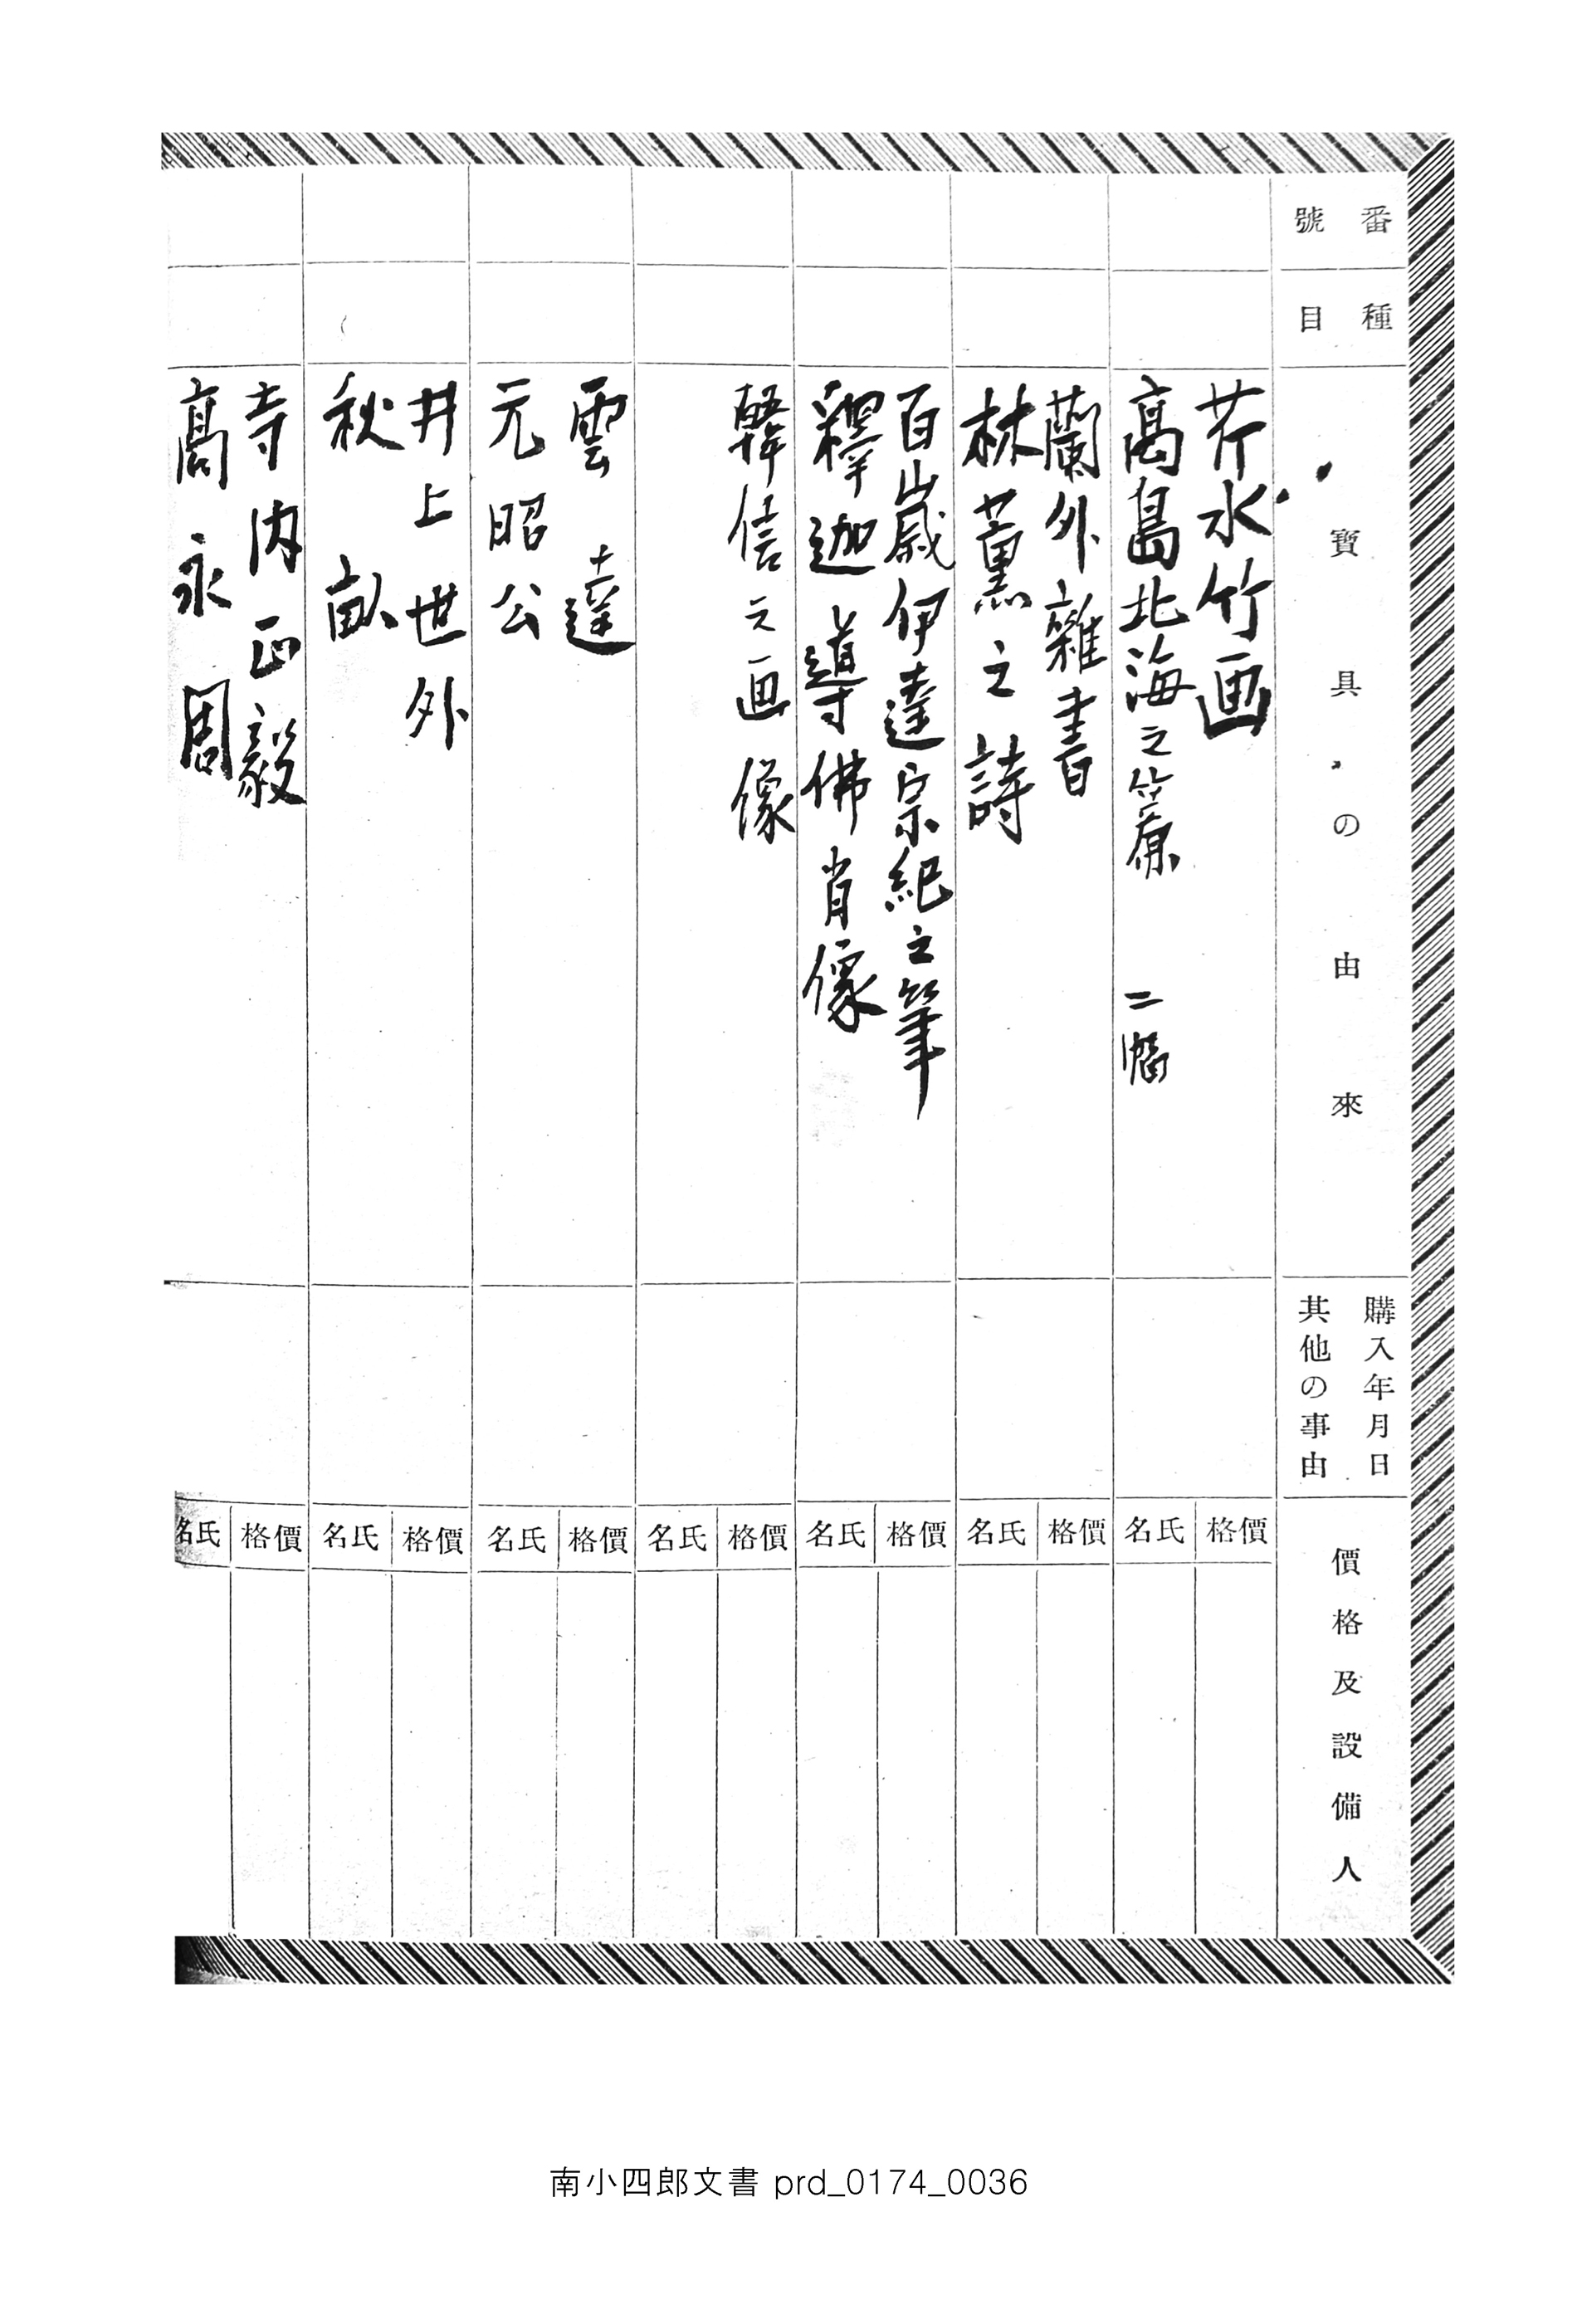 番號
種目
寶具の由來
購入年月日
其他の事由
價格及設備人
芹水竹画
高島北海之
二幅
價格
氏名
蘭外雜書
林薫之詩
價格
氏名
百歳伊達宗紀之筆
釋迦導佛肖像
價格
氏名
韓信之画像
價格
氏名
雲達
元昭公
價格
氏名
井上世外
秋畝
價格
氏名
寺内正毅
高永周
價格
氏名
南小四郎文書 prd_0174_0036